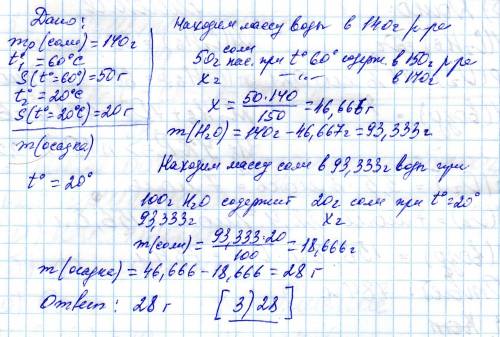 Дано:
m р (соли) = 140г
t₁° = 60°C
S(t°=60°) = 50г
t₂° = 20°C
S(t°=20°C) = 20г
m(осадка)
t° = 20°
Находим массу воды в 140г р-ра
50г соли нас. при t° 60° содерж. в 150г р-ра
xг —"— в 140г
x = 50·140 / 150 = 46,667г
m(H₂O) = 140г - 46,667г = 93,333г
Находим массу соли в 93,333г воды при
100г H₂O содержит 20г соли при t°=20°
93,333г xг
m(соли) = 93,333·20 / 100 = 18,666г
m(осадка) = 46,666 - 18,666 = 28 г
Ответ: 28 г [3) 28]